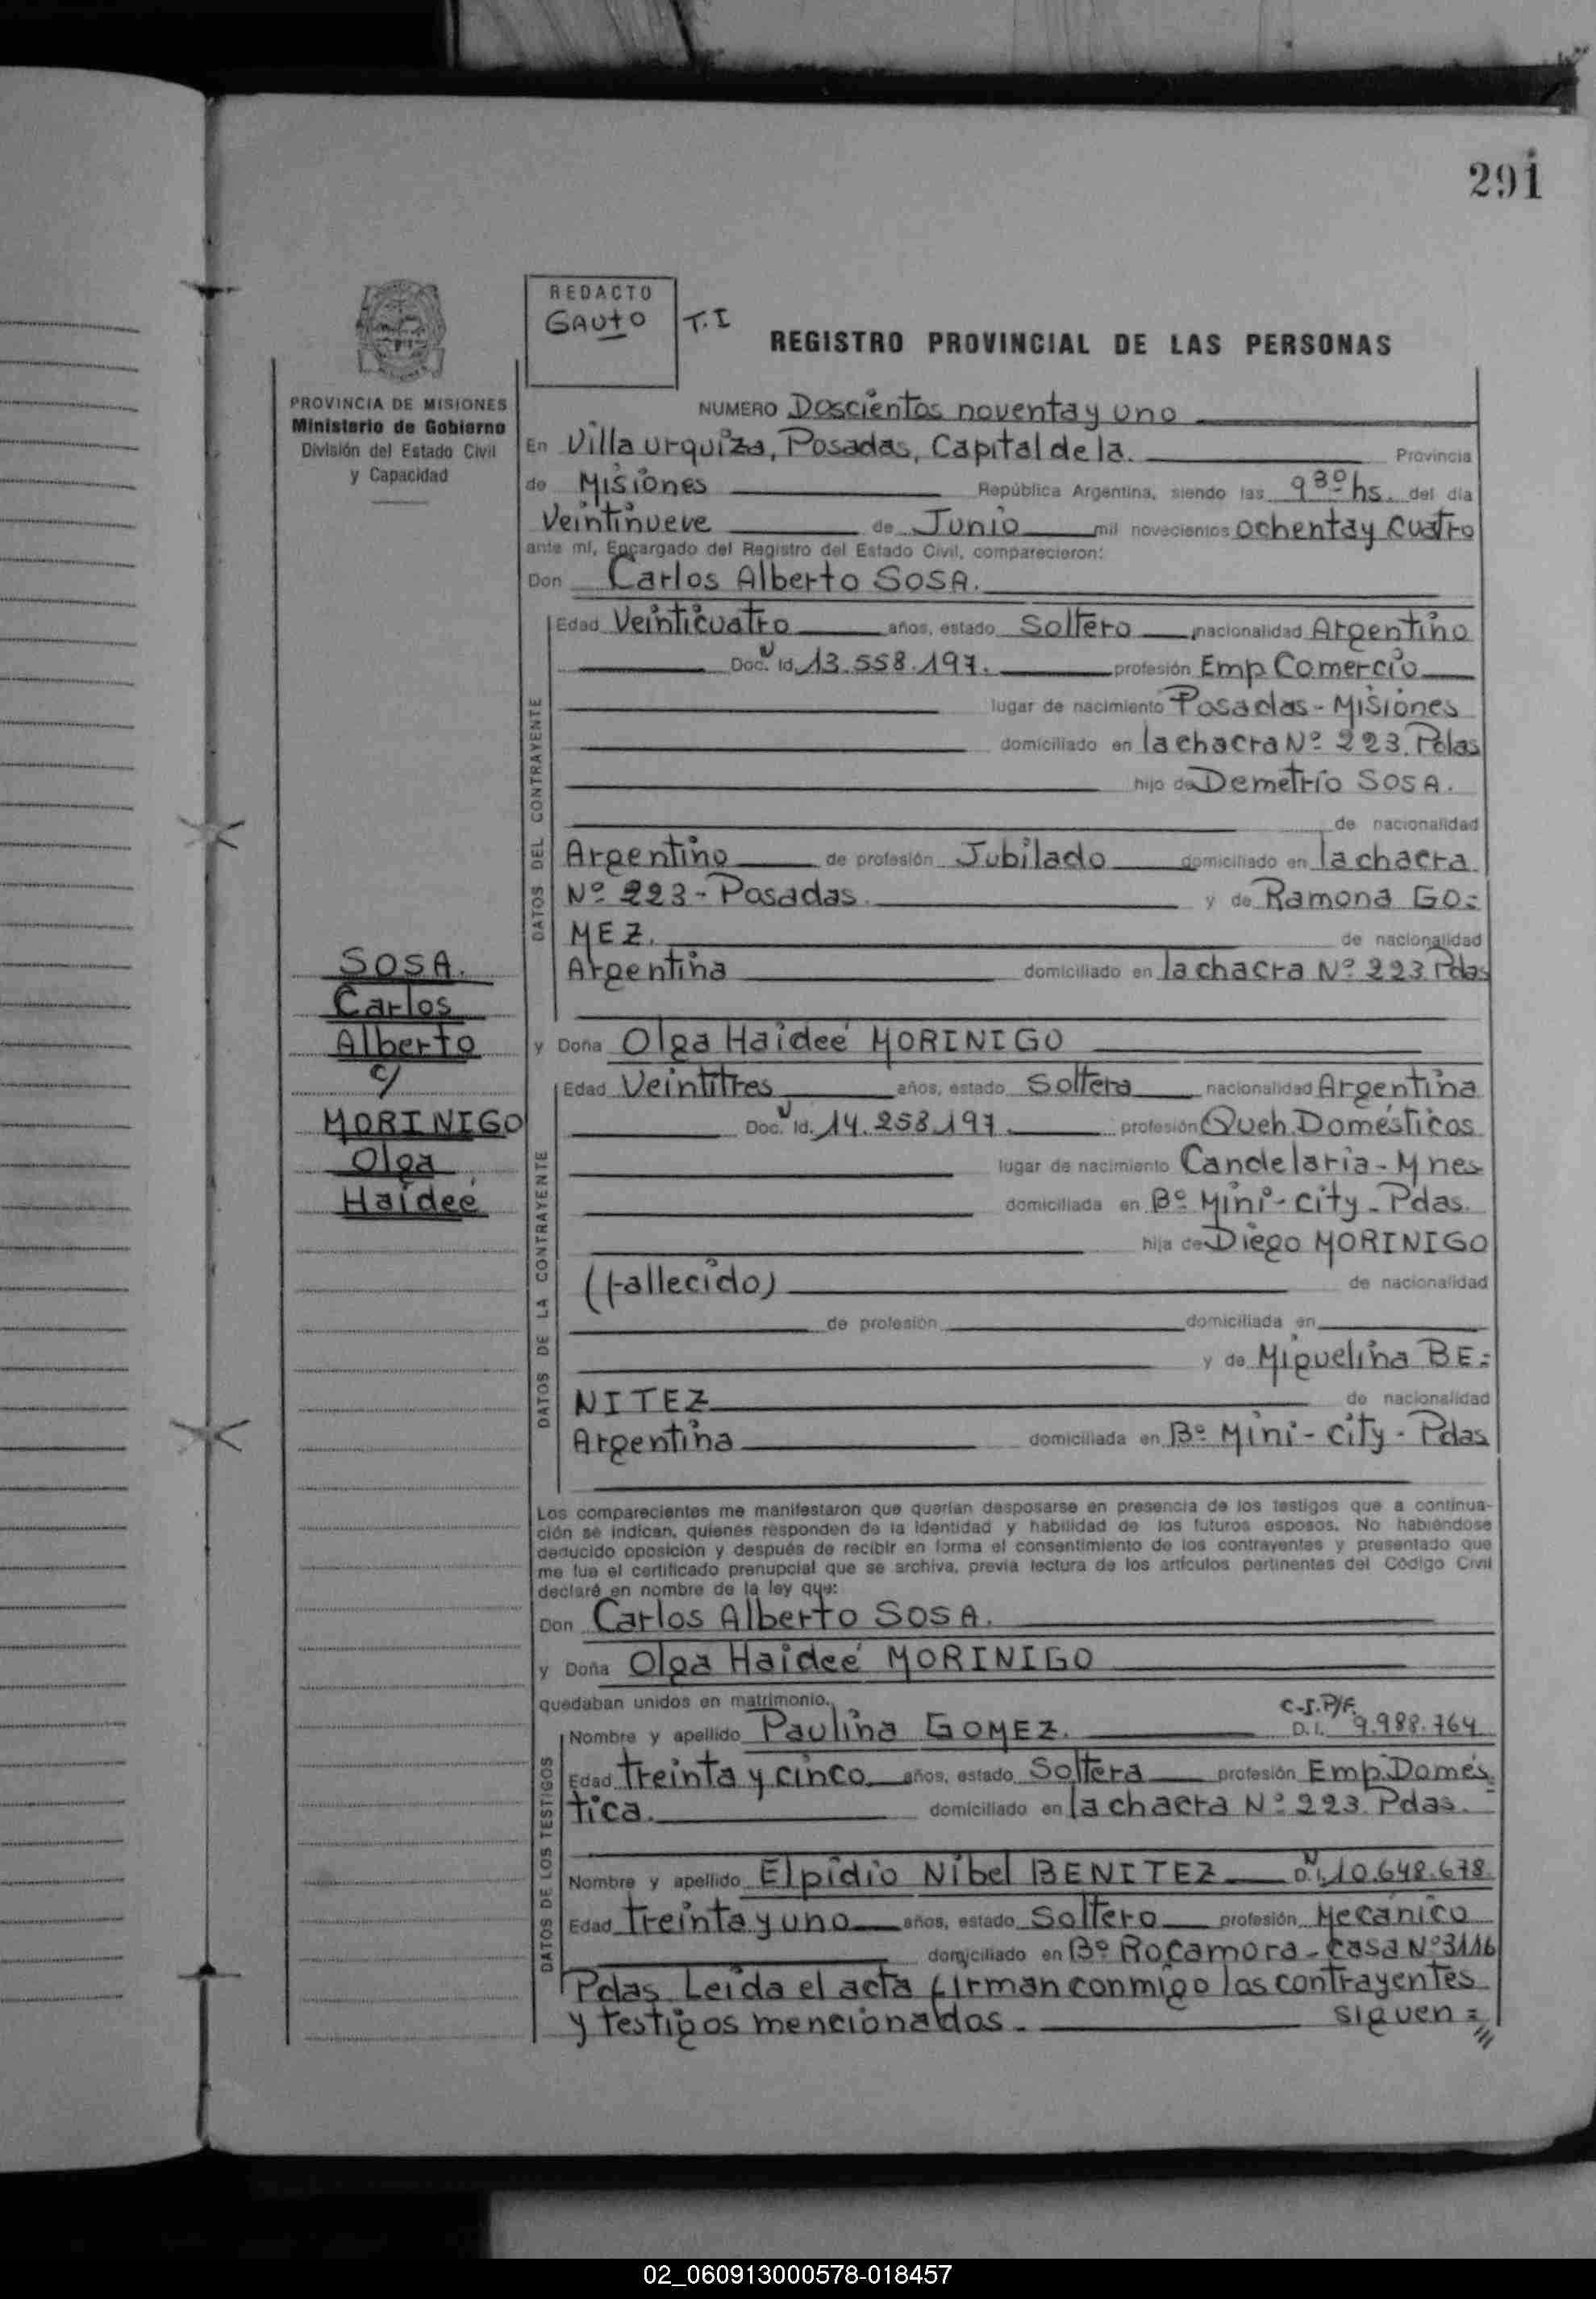 291
REDACTO
GAUTO
T.I
REGISTRO PROVINCIAL DE LAS PERSONAS
PROVINCIA DE MISIONES
Ministerio de Gobierno
División del Estado Civil
y Capacidad
NUMERO Doscientos noventa y uno
En Villa urquiza, Posadas, Capital de la. Provincia
de Misiones República Argentina, siendo las 9 30 hs. del día
Veintinueve de Junio mil novecientos ochenta y cuatro
ante mí, Encargado del Registro del Estado Civil, comparecieron:
Don Carlos Alberto SOSA.
DATOS DEL CONTRAYENTE
Edad Veinticuatro años, estado Soltero nacionalidad Argentino
Doc. N Id. 13.558.197. profesión Emp Comercio
lugar de nacimiento Posadas - Misiones
domiciliado en la chacra Nº 223. Pdas
hijo de Demetrio SOSA.
de nacionalidad
Argentino de profesión Jubilado domiciliado en la chacra
Nº 223 - Posadas. y de Ramona GO=
MEZ. de nacionalidad
Argentina domiciliado en la chacra Nº 223. Pdas
SOSA.
Carlos
Alberto
c/
MORINIGO
Olga
Haideé
y Doña Olga Haideé MORINIGO
DATOS DE LA CONTRAYENTE
Edad Veintitres años, estado Soltera nacionalidad Argentina
Doc. N Id. 14.258.197. profesión Queh. Domésticos
lugar de nacimiento Candelaria - Mnes
domiciliada en Bº Mini - City - Pdas.
hija de Diego MORINIGO
(fallecido) de nacionalidad
de profesión domiciliada en
y de Miguelina BE=
NITEZ de nacionalidad
Argentina domiciliada en Bº Mini - City - Pdas
Los comparecientes me manifestaron que querían desposarse en presencia de los testigos que a continua-
ción se indican, quienes responden de la identidad y habilidad de los futuros esposos. No habiéndose
deducido oposición y después de recibir en forma el consentimiento de los contrayentes y presentado que
me fue el certificado prenupcial que se archiva, previa lectura de los artículos pertinentes del Código Civil
declaré en nombre de la ley que:
Don Carlos Alberto SOSA.
y Doña Olga Haideé MORINIGO
quedaban unidos en matrimonio.
DATOS DE LOS TESTIGOS
C-I.P/F.
Nombre y apellido Paulina GOMEZ. D.I. 9.988.764
Edad treinta y cinco años, estado Soltera profesión Emp. Domés
tica. domiciliado en la chacra Nº 223. Pdas.
Nombre y apellido Elpidio Nibel BENITEZ D.N.I. 10.648.678.
Edad treinta y uno años, estado Soltero profesión Mecánico
domiciliado en Bº Rocamora - Casa Nº 3116
Pdas. Leída el acta firman conmigo los contrayentes
y testigos mencionados. siguen =///
02_060913000578-018457